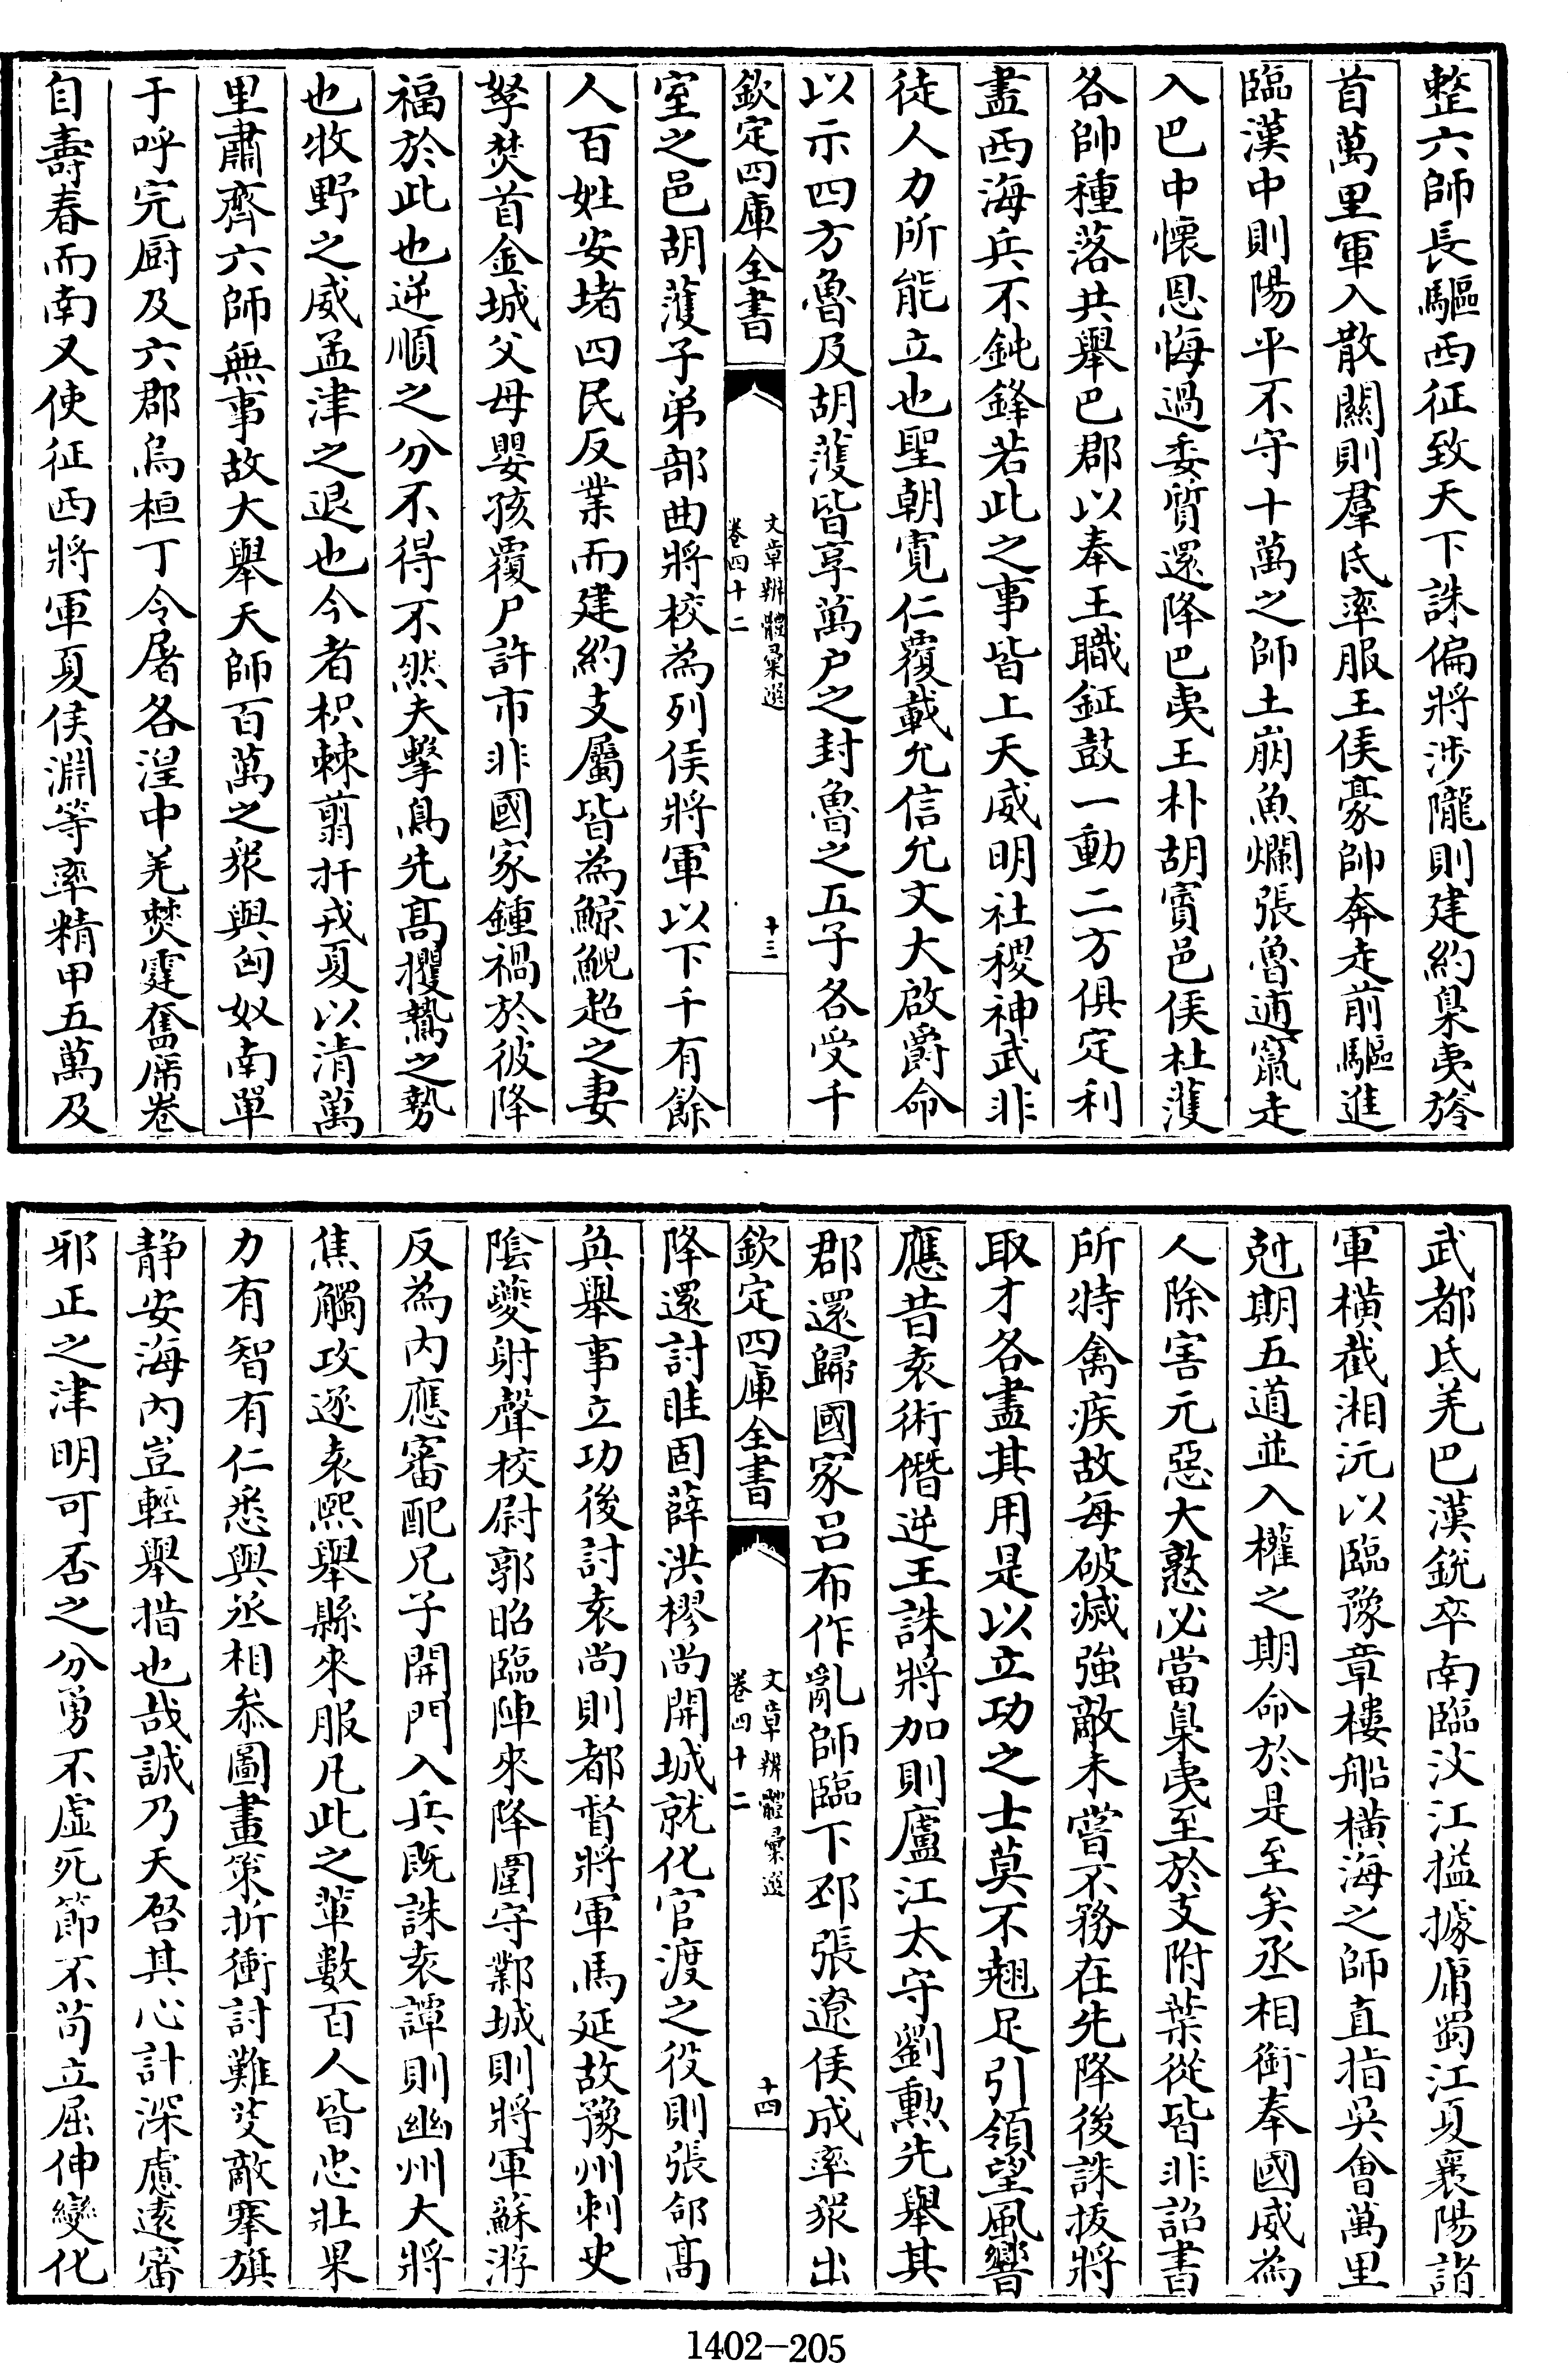 整六師長驅西征致天下誅偏將涉隴則建約梟夷旍
首萬里軍入散關則羣氐率服王侯豪帥奔走前驅進
臨漢中則陽平不守十萬之師土崩魚爛張魯逋竄走
入巴中懷恩悔過委質還降巴夷王朴胡賨邑侯杜濩
各帥種落共舉巴郡以奉王職鉦鼓一動二方俱定利
盡西海兵不鈍鋒若此之事皆上天威明社稷神武非
徒人力所能立也聖朝寛仁覆載允信允文大啟爵命
以示四方魯及胡濩皆享萬户之封魯之五子各受千
欽定四庫全書
文章辨體彙選
卷四十二
十三
室之邑胡濩子弟部曲將校為列侯將軍以下千有餘
人百姓安堵四民反業而建約支屬皆為鯨鯢超之妻
孥焚首金城父母嬰孩覆尸許市非國家鍾禍於彼降
福於此也逆順之分不得不然夫擊鳥先髙攫鷙之勢
也牧野之威孟津之退也今者枳棘翦扞戎夏以清萬
里肅齊六師無事故大舉天師百萬之衆與匈奴南單
于呼完厨及六郡烏桓丁令屠各湟中羌僰霆奮席卷
自壽春而南又使征西將軍夏侯淵等率精甲五萬及
武都氐羌巴漢銳卒南臨汶江搤據庸蜀江夏襄陽諸
軍橫截湘沅以臨豫章樓船橫海之師直指吳會萬里
尅期五道並入權之期命於是至矣丞相銜奉國威為
人除害元惡大憝必當梟夷至於支附葉從皆非詔書
所特禽疾故每破滅強敵未嘗不務在先降後誅拔將
取才各盡其用是以立功之士莫不翹足引領望風響
應昔袁術僭逆王誅將加則廬江太守劉勲先舉其
郡還歸國家呂布作亂師臨下邳張遼侯成率衆出
欽定四庫全書
文章辨體彙選
卷四十二
十四
降還討眭固薛洪樛尚開城就化官渡之役則張郃髙
奐舉事立功後討袁尚則都督將軍馬延故豫州刺史
陰夔射聲校尉郭昭臨陣來降圍守鄴城則將軍蘇游
反為内應審配兄子開門入兵既誅袁譚則幽州大將
焦觸攻逐袁熙舉縣來服凡此之輩數百人皆忠壯果
力有智有仁悉與丞相叅圖畫策折衝討難芟敵搴旗
静安海内豈輕舉措也哉誠乃天啓其心計深慮逺審
邪正之津明可否之分勇不虛死節不苟立屈伸變化
1402-205